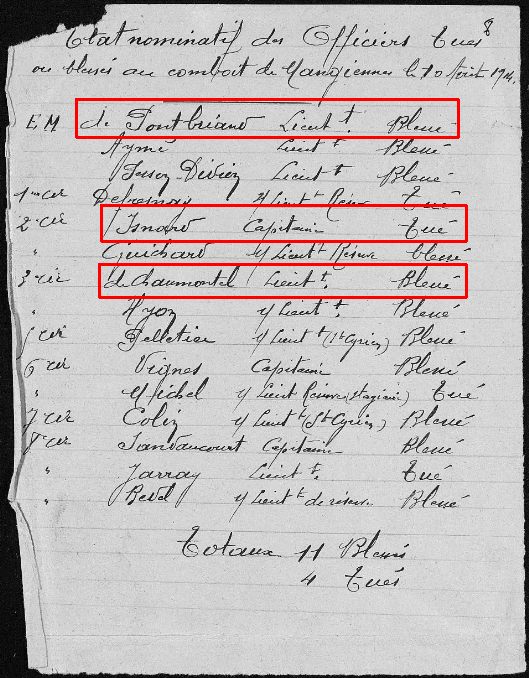 8
Etat nominatif des Officiers tués
ou blessés au combat de Mangiennes le 10 Août 1914.
EM de Pontbriand Lieutt. Blessé
Aymé Lieutt Blessé
Lieutt Blessé
1ère Cie Defresnay s/ Lieutt Réserve Tué
2e Cie Isnard Capitaine Tué
" Guichard s/ Lieutt Réserve blessé
3e Cie de Chaumontel Lieutt. Blessé
" Hyon s/ Lieutt. Blessé
5e Cie Pelletier s/ Lieutt (St Cyrien) Blessé
6e Cie Vignes Capitaine Blessé
" Michel s/ Lieut Réserve (stagiaire) Tué
7e Cie Colin s/ Lieutt (St Cyrien) Blessé
8e Cie Jandaucourt Capitaine Blessé
" Jarray Lieutt. Tué
" Revel s/ Lieutt de réserve Blessé
Totaux 11 Blessés
4 Tués